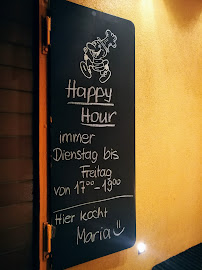 Happy
Hour
immer
Dienstag bis
Freitag
von 17⁰⁰-19⁰⁰
Hier kocht
Maria